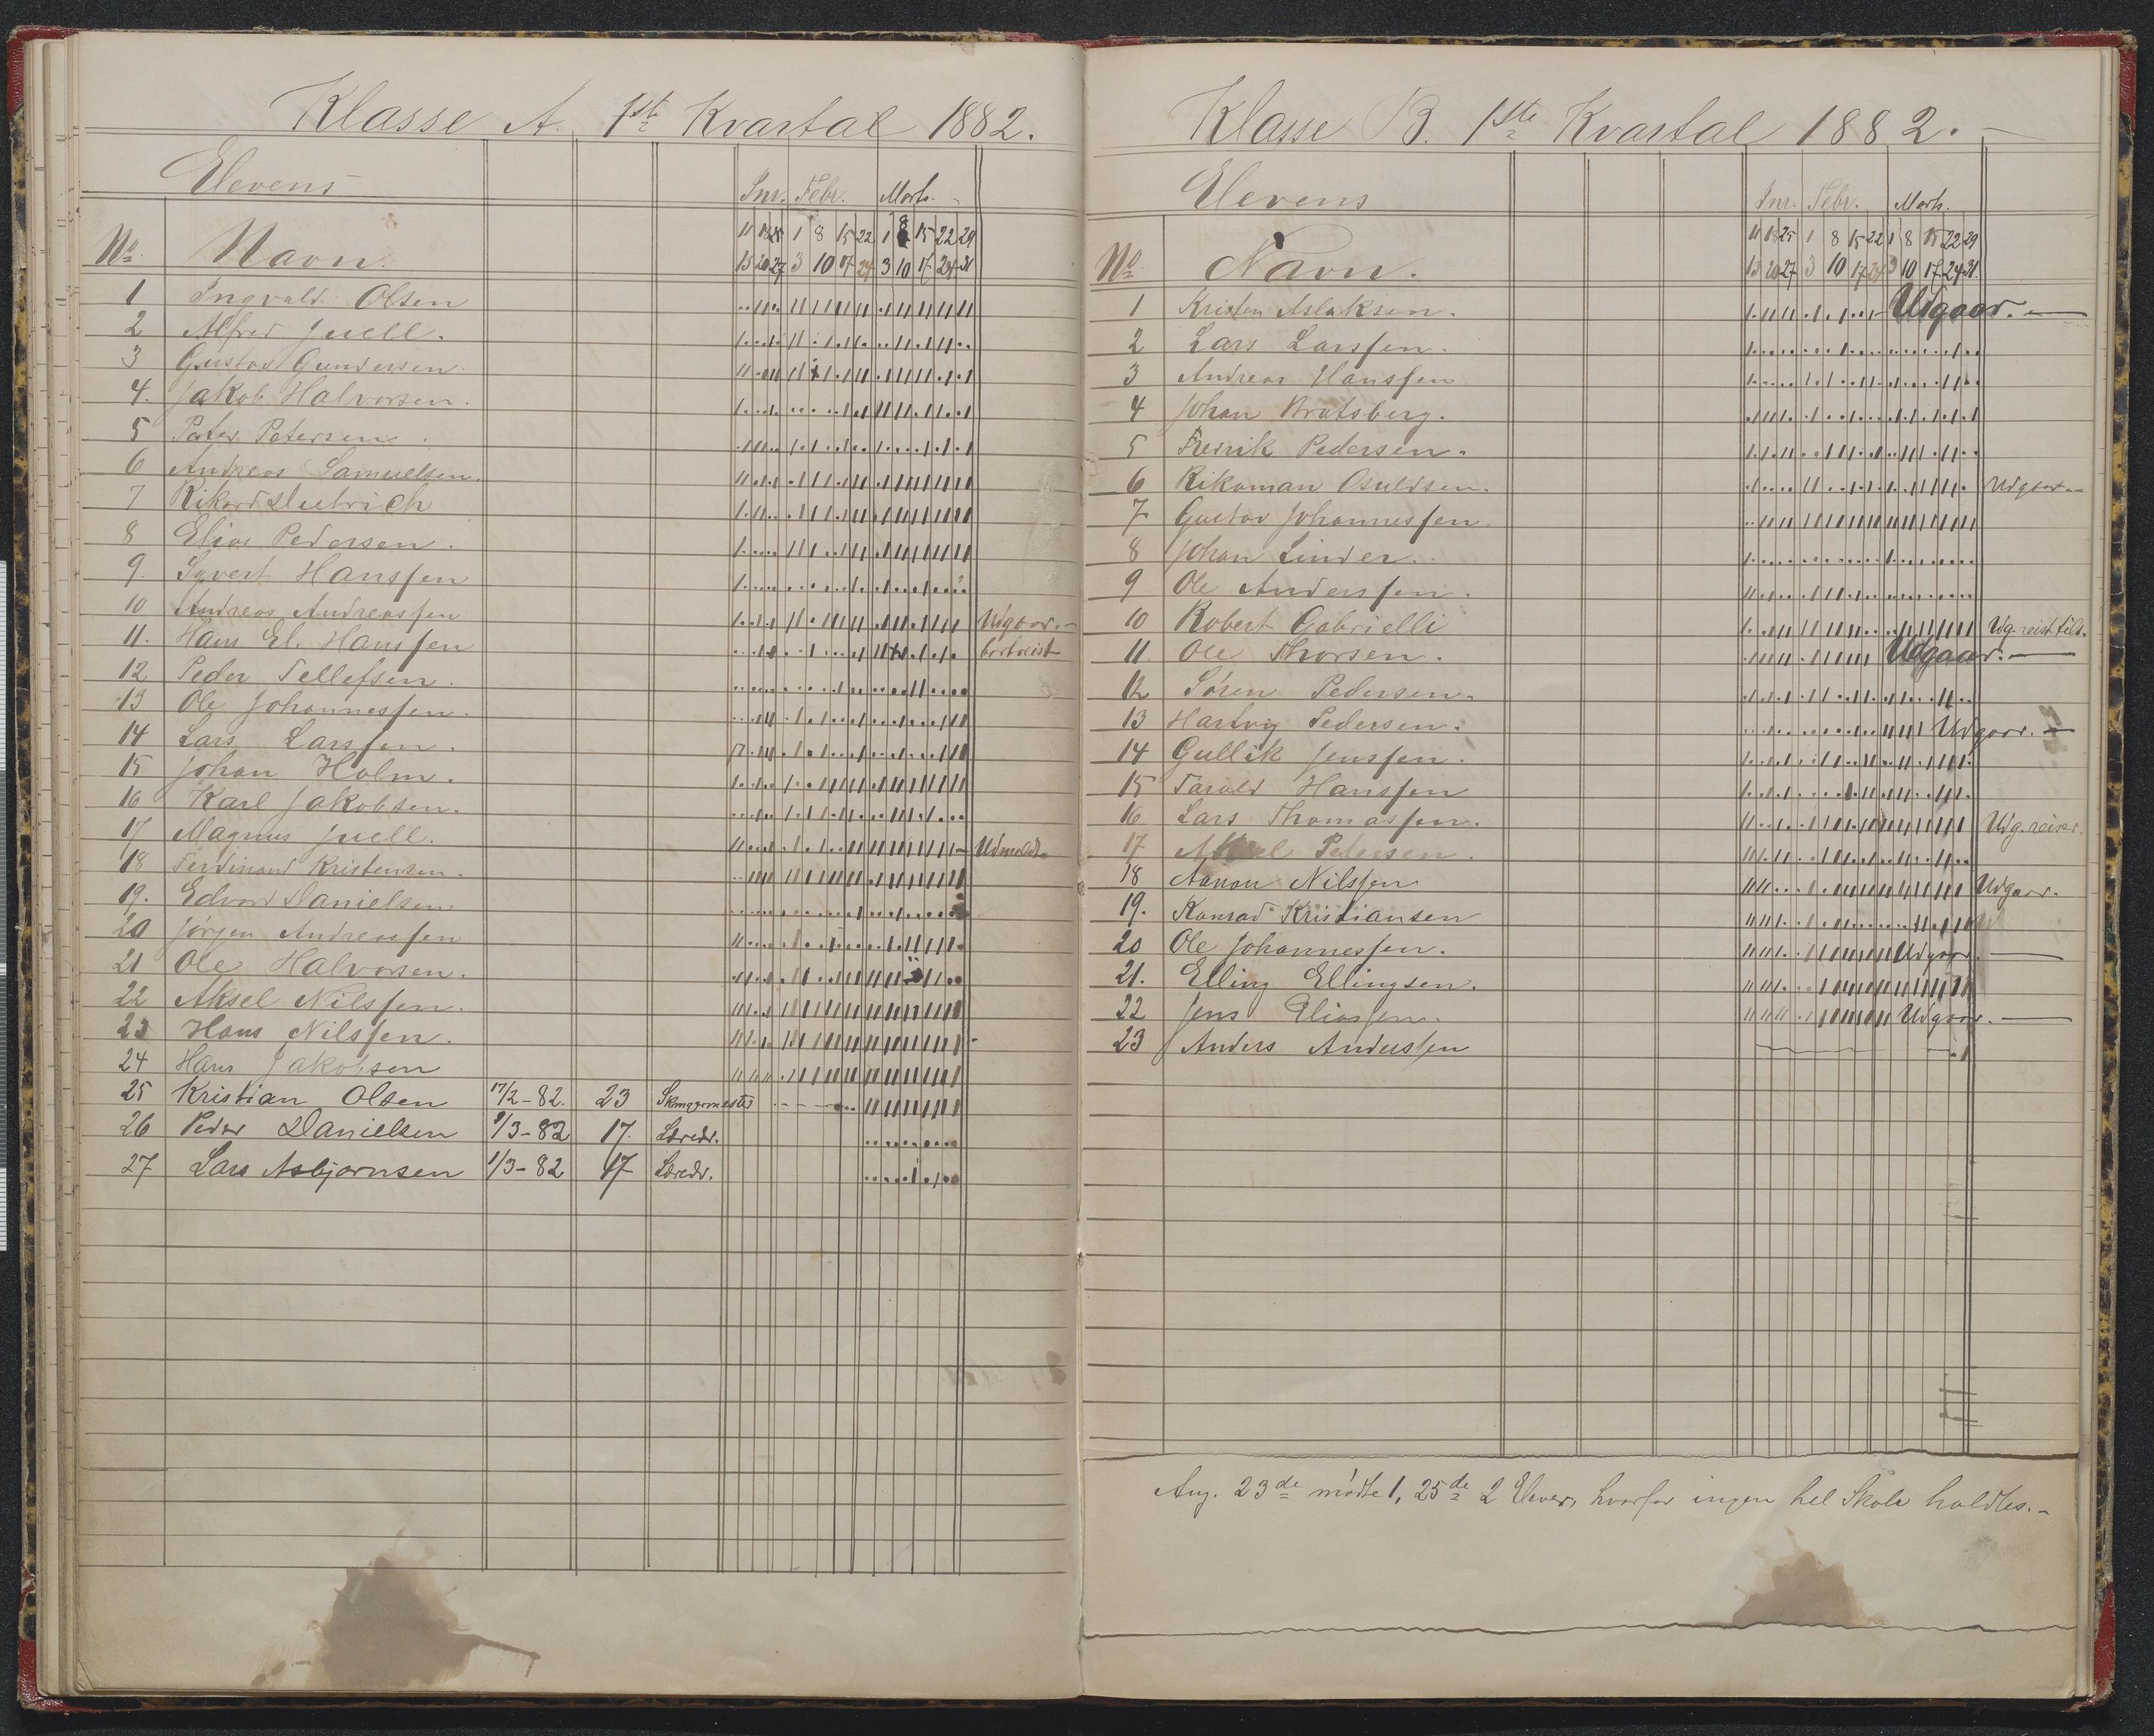 Klasse A. 1ste Kvartal 1882.
Elevens
Jnr. Febr. Marts.
11 18 25 1 8 15 22 1 8 15 22 29
No. Navn. 13 20 27 3 10 17 24 3 10 17 24 31
1 Ingvald Olsen
2 Alfred Juell.
3 Gustav Gundersen.
4. Jakob Halvorsen.
5 Peter Petersen.
6 Andreas Samuelsen.
7 Rikard Dietrich
8 Elias Pedersen.
9. Syvert Hanssen
10 Andreas Andreassen Udgaar.
11. Hans El. Hanssen bortreist
12 Peder Tellefsen.
13 Ole Johannessen.
14 Lars Larssen.
15 Johan Holm.
16 Karl Jakobsen.
17 Magnus Juell. Udmeldt
18 Ferdinand Kristensen.
19. Edvard Danielsen
20 Jørgen Andreassen
21 Ole Halvorsen.
22 Aksel Nilssen.
23 Hans Nilssen.
24 Hans Jakobsen
25 Kristian Olsen 17/2-82. 23
26 Peder Danielsen 1/3-82 17. Læredr.
27 Lars Asbjørnsen 1/3-82 17 Læredr.
Klasse B. 1ste Kvartal 1882.
Elevens
Jnr. Febr. Marts.
11 18 25 1 8 15 22 1 8 15 22 29
No. Navn. 13 20 27 3 10 17 24 3 10 17 24 31.
1 Kristen Aslaksen. Udgaar.
2 Lars Larssen.
3 Andreas Hanssen
4 Johan Bratsberg.
5 Fredrik Pedersen.
6 Rikoman Osuldsen. Udgaar.
7 Gustav Johannessen.
8 Johan Linder.
9 Ole Anderssen.
10 Robert Gabrielli Udg. reist tils.
11. Ole Thorsen. Udgaar.
12 Søren Pedersen.
13 Hartvig Pedersen. Udgaar.
14 Gullik Jenssen.
15 Tarald Hanssen
16 Lars Thomassen. Udg. reiser.
17 Aksel Petersen.
18 Aanon Nilssen Udgaar.
19. Konrad Kristiansen
20 Ole Johannessen. Udgaar.
21. Elling Ellingsen.
22 Jens Eliassen. Udgaar.
23 Anders Anderssen
Aug. 23de mødte 1, 25de 2 Elever, hvorfor ingen hel Skole holdtes.